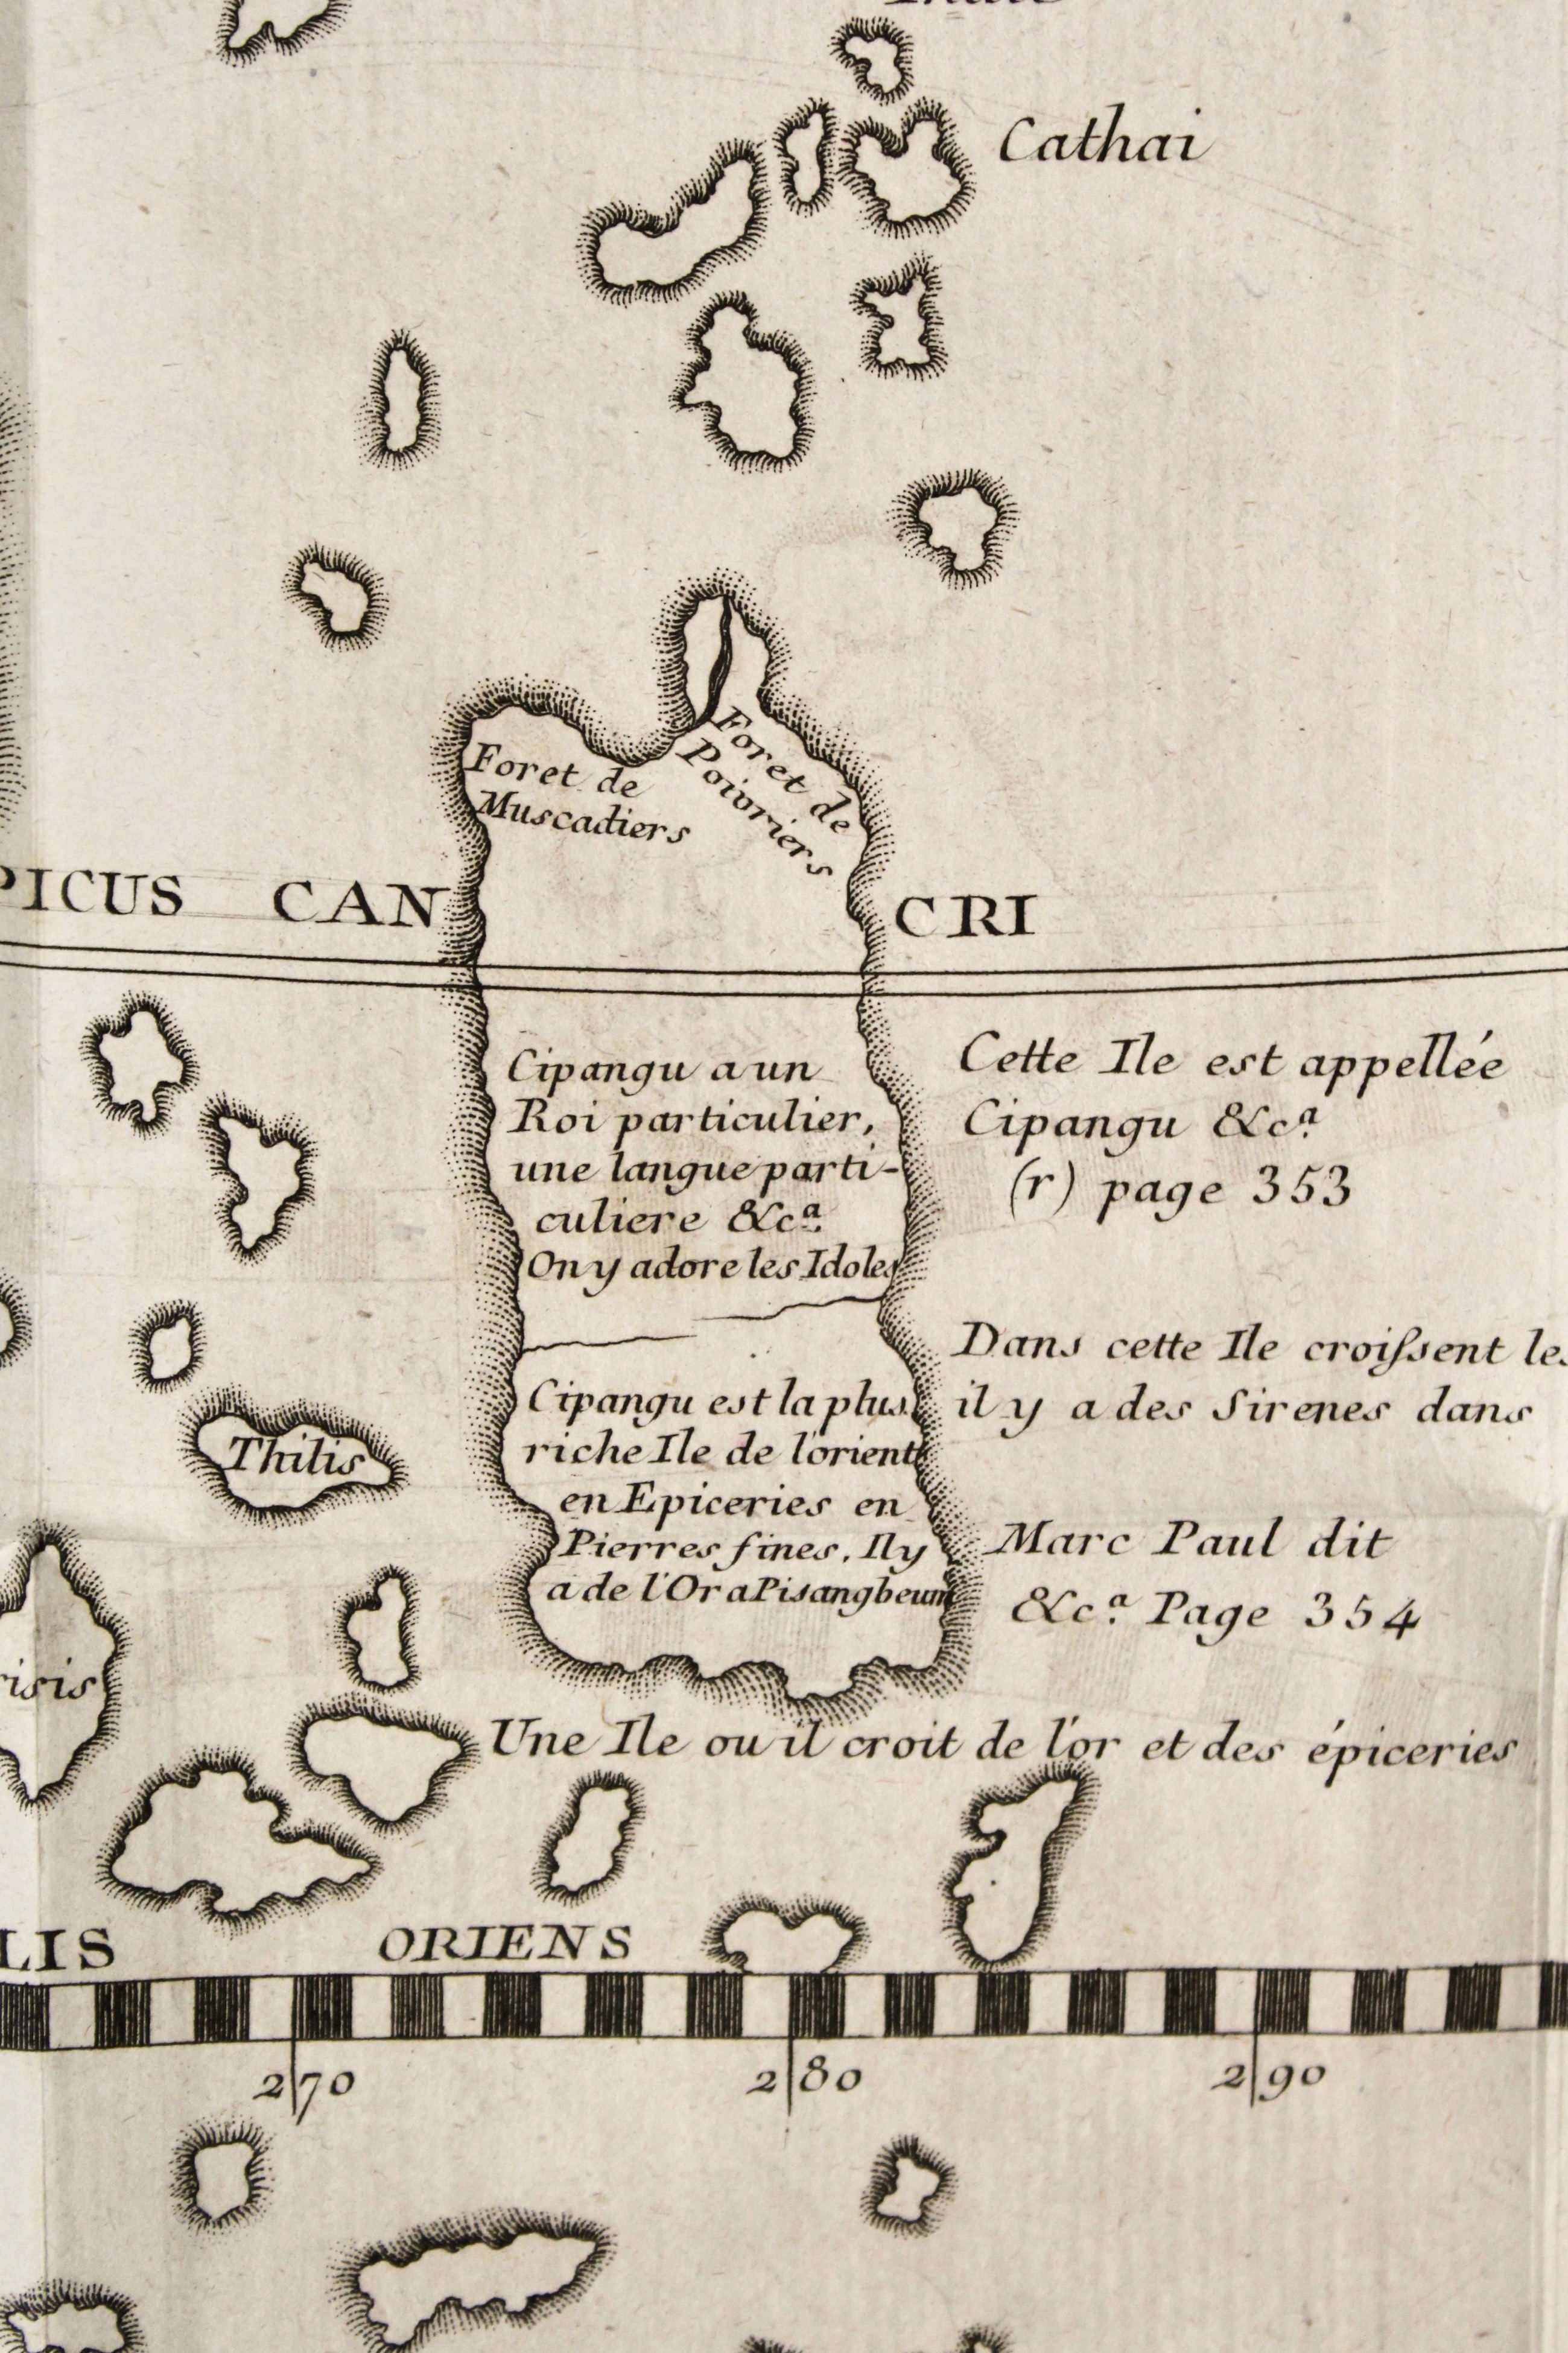 Cathai
Foret de
Muscadiers
Foret de
Poivriers
PICUS CAN CRI
Cipangu a un
Roi particulier,
une langue parti-
culiere &c.a
On y adore les Idoles
Cette Ile est appellée
Cipangu &c.a
(r) page 353
Dans cette Ile croissent les
il y a des Sirenes dans
Cipangu est la plus
riche Ile de l'orient
en Epiceries en
Pierres fines. Il y
a de l'Or a Pisangbeum
Marc Paul dit
&c.a Page 354
Thilis
risis
Une Ile ou il croit de l'or et des épiceries
LIS ORIENS
270 280 290